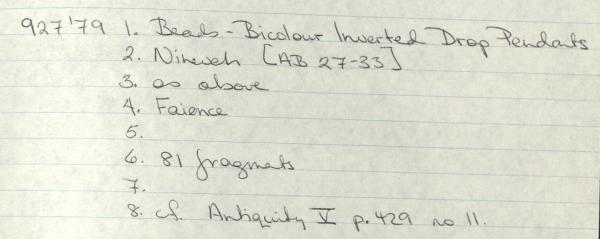 927'79 1. Beads - Bicolour Inverted Drop Pendants
2. Nineveh [AB 27-33]
3. as above
4. Faience
5.
6. 81 fragments
7.
8. cf. Antiquity V p.429 no 11.